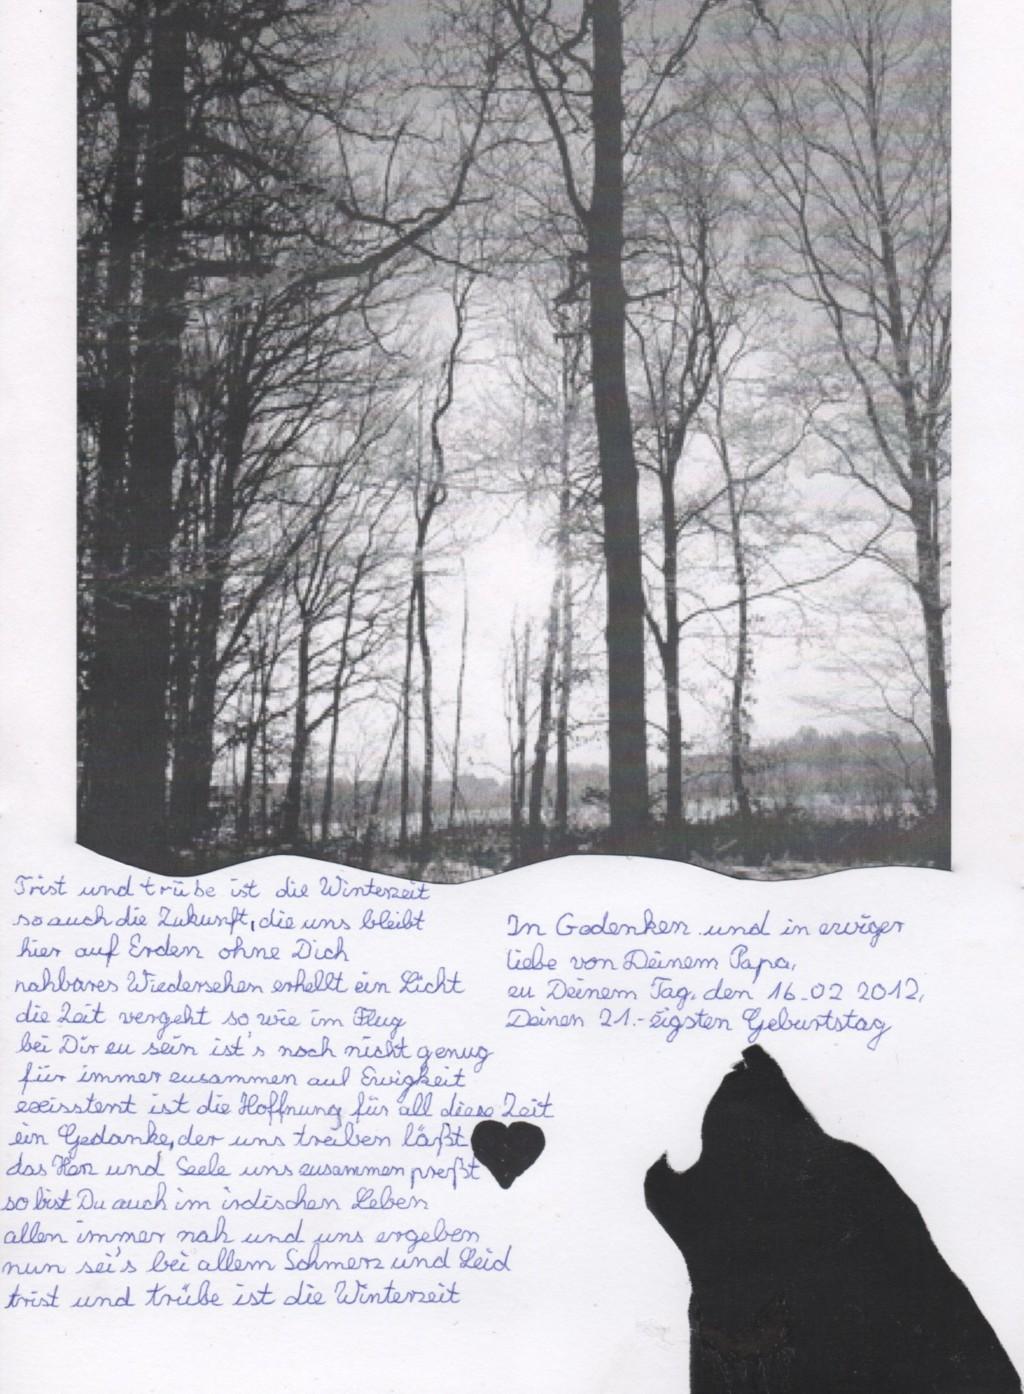 Trist und trübe ist die Winterzeit
so auch die Zukunft, die uns bleibt
hier auf Erden ohne Dich
nahbares Wiedersehen erhellt ein Licht
die Zeit vergeht so wie im Flug
bei Dir zu sein ist's noch nicht genug
für immer zusammen auf Ewigkeit
exisstent ist die Hoffnung für all diese Zeit
ein Gedanke, der uns treiben läßt
das Herz und Seele uns zusammen preßt
so bist Du auch im irdischen Leben
allen immer nah und uns ergeben
nun sei's bei allem Schmerz und Leid
trist und trübe ist die Winterzeit
In Gedenken und in ewiger
liebe von Deinem Papa,
zu Deinem Tag, den 16.02 2012,
Deinen 21.-zigsten Geburtstag